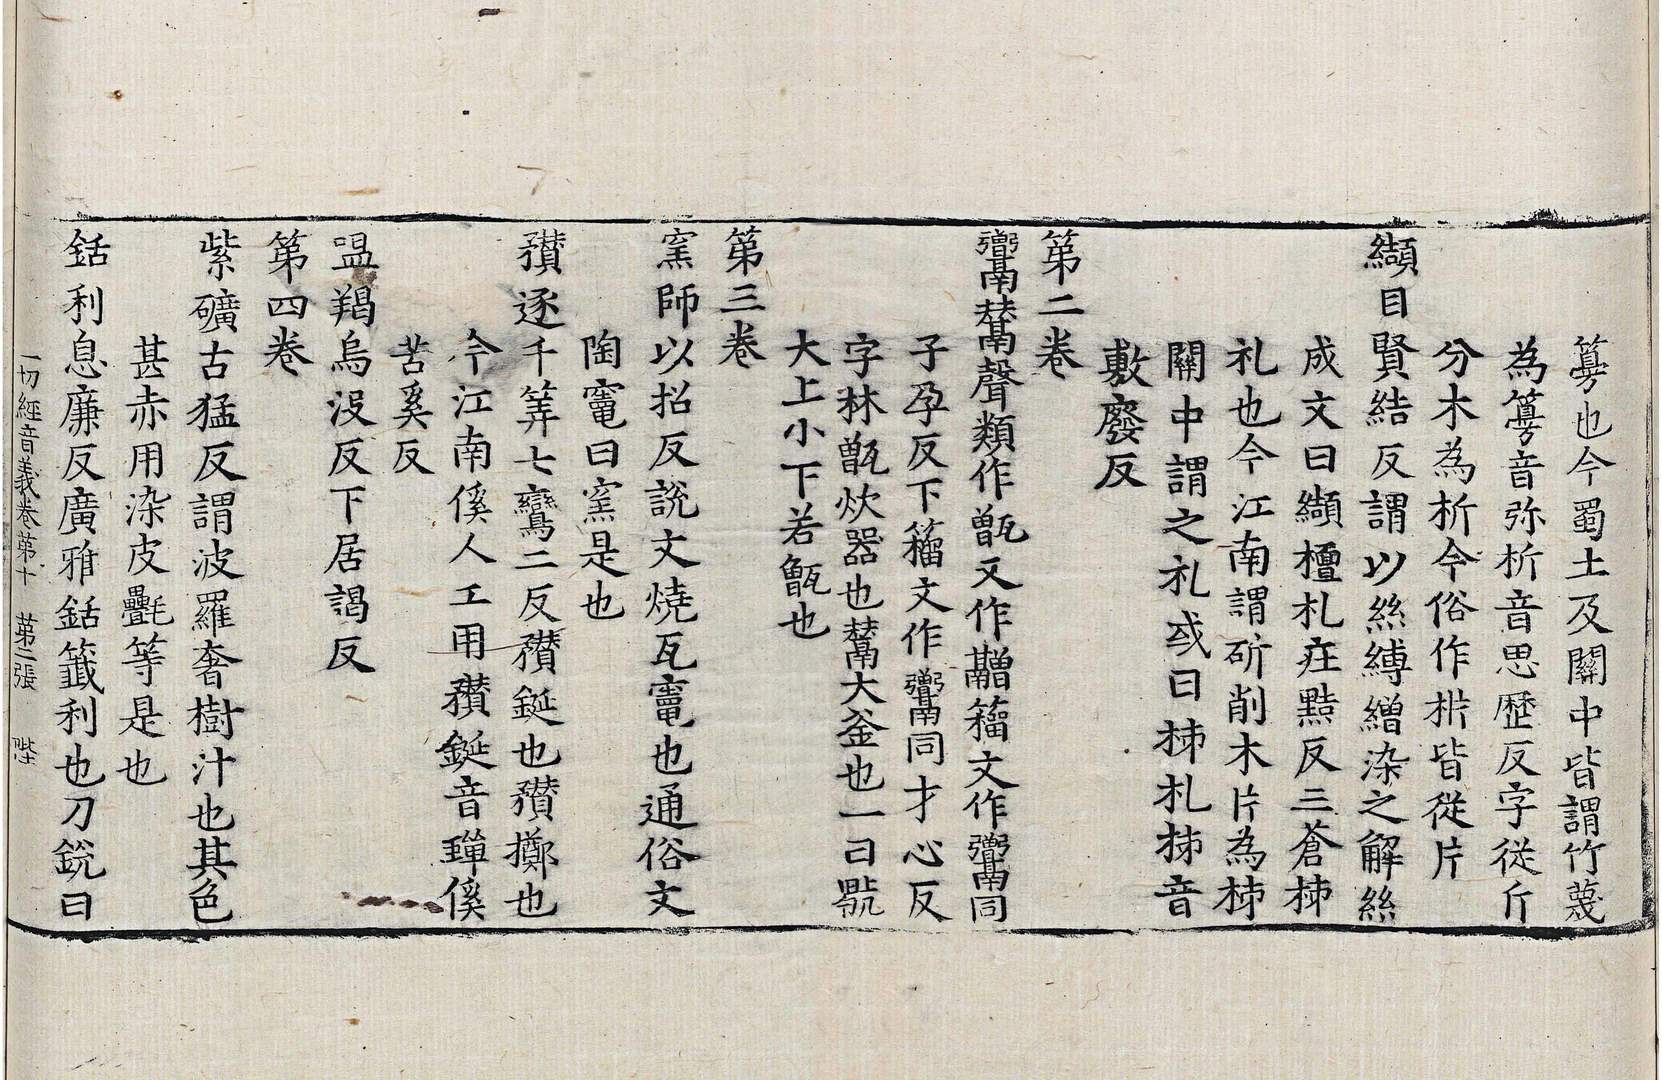 篾也今蜀土及關中皆謂竹蔑
為篾音弥析音思歷反字從斤
分木為析今俗作枿皆從片
纈目賢結反謂以絲縛繒染之解絲
成文曰纈櫃札疰黠反三蒼柿
札也今江南謂斫削木片為柿
關中謂之札或曰柿札柿音
敷廢反
第二卷
鬻鬵聲類作甑又作䰝籀文作鬻同
子孕反下籀文作鬻同才心反
字林甑炊器也鬵大釜也一曰鬵
大上小下若甑也
第三卷
窯師以招反說文燒瓦竈也通俗文
陶竈曰窯是也
穳逐千筭七鸞二反穳鋋也穳擲也
今江南傒人工用穳鋋音蟬傒
苦奚反
嗢羯烏沒反下居謁反
第四卷
紫礦古猛反謂波羅奢樹汁也其色
甚赤用染皮氎等是也
銛利息廉反廣雅銛籤利也刀銳曰
一切經音義卷第十 第二張 陛